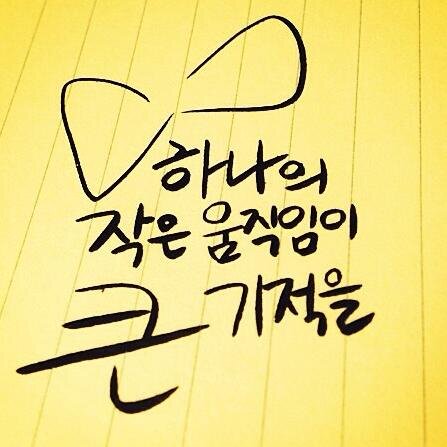 하나의
작은 움직임이
큰 기적을